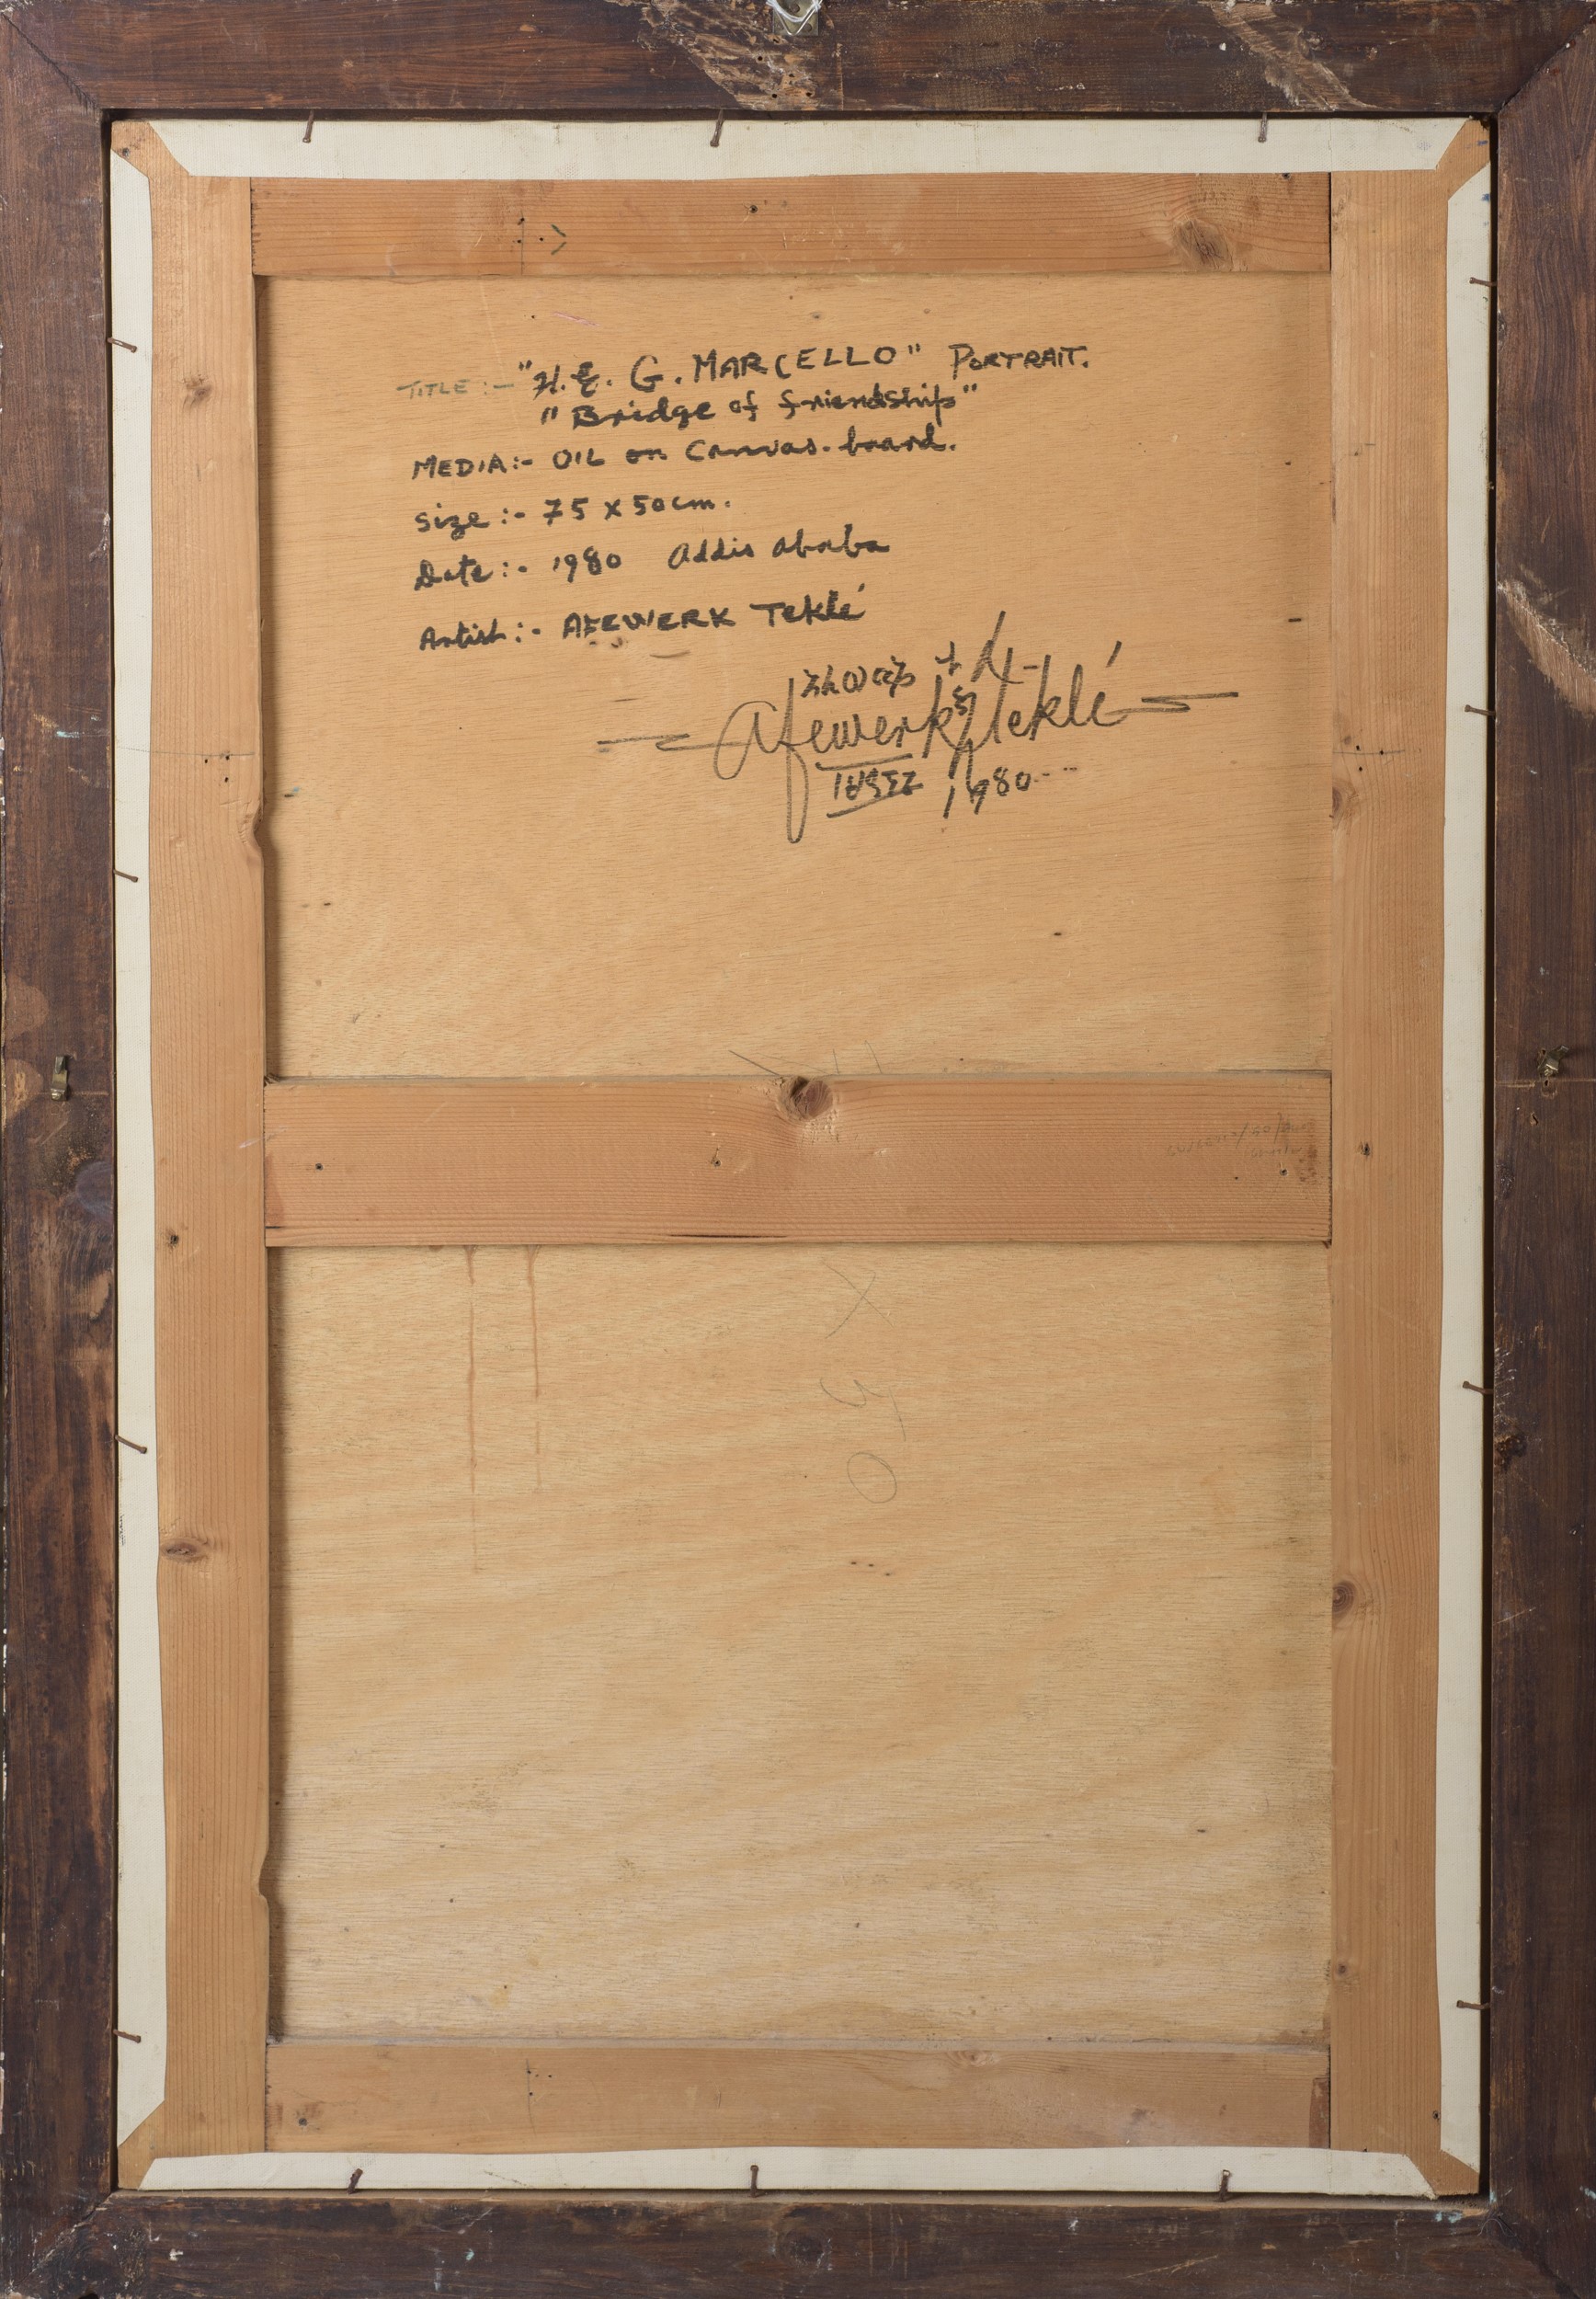 TITLE :- "H.E. G. MARCELLO" PORTRAIT.
"Bridge of friendship"
MEDIA:- OIL on Canvas. board.
Size :- 75 x 50 cm.
Date :- 1980 Addis ababa
Artist :- AFEWERK Teklé
Afewerk Teklé
1980
X 50